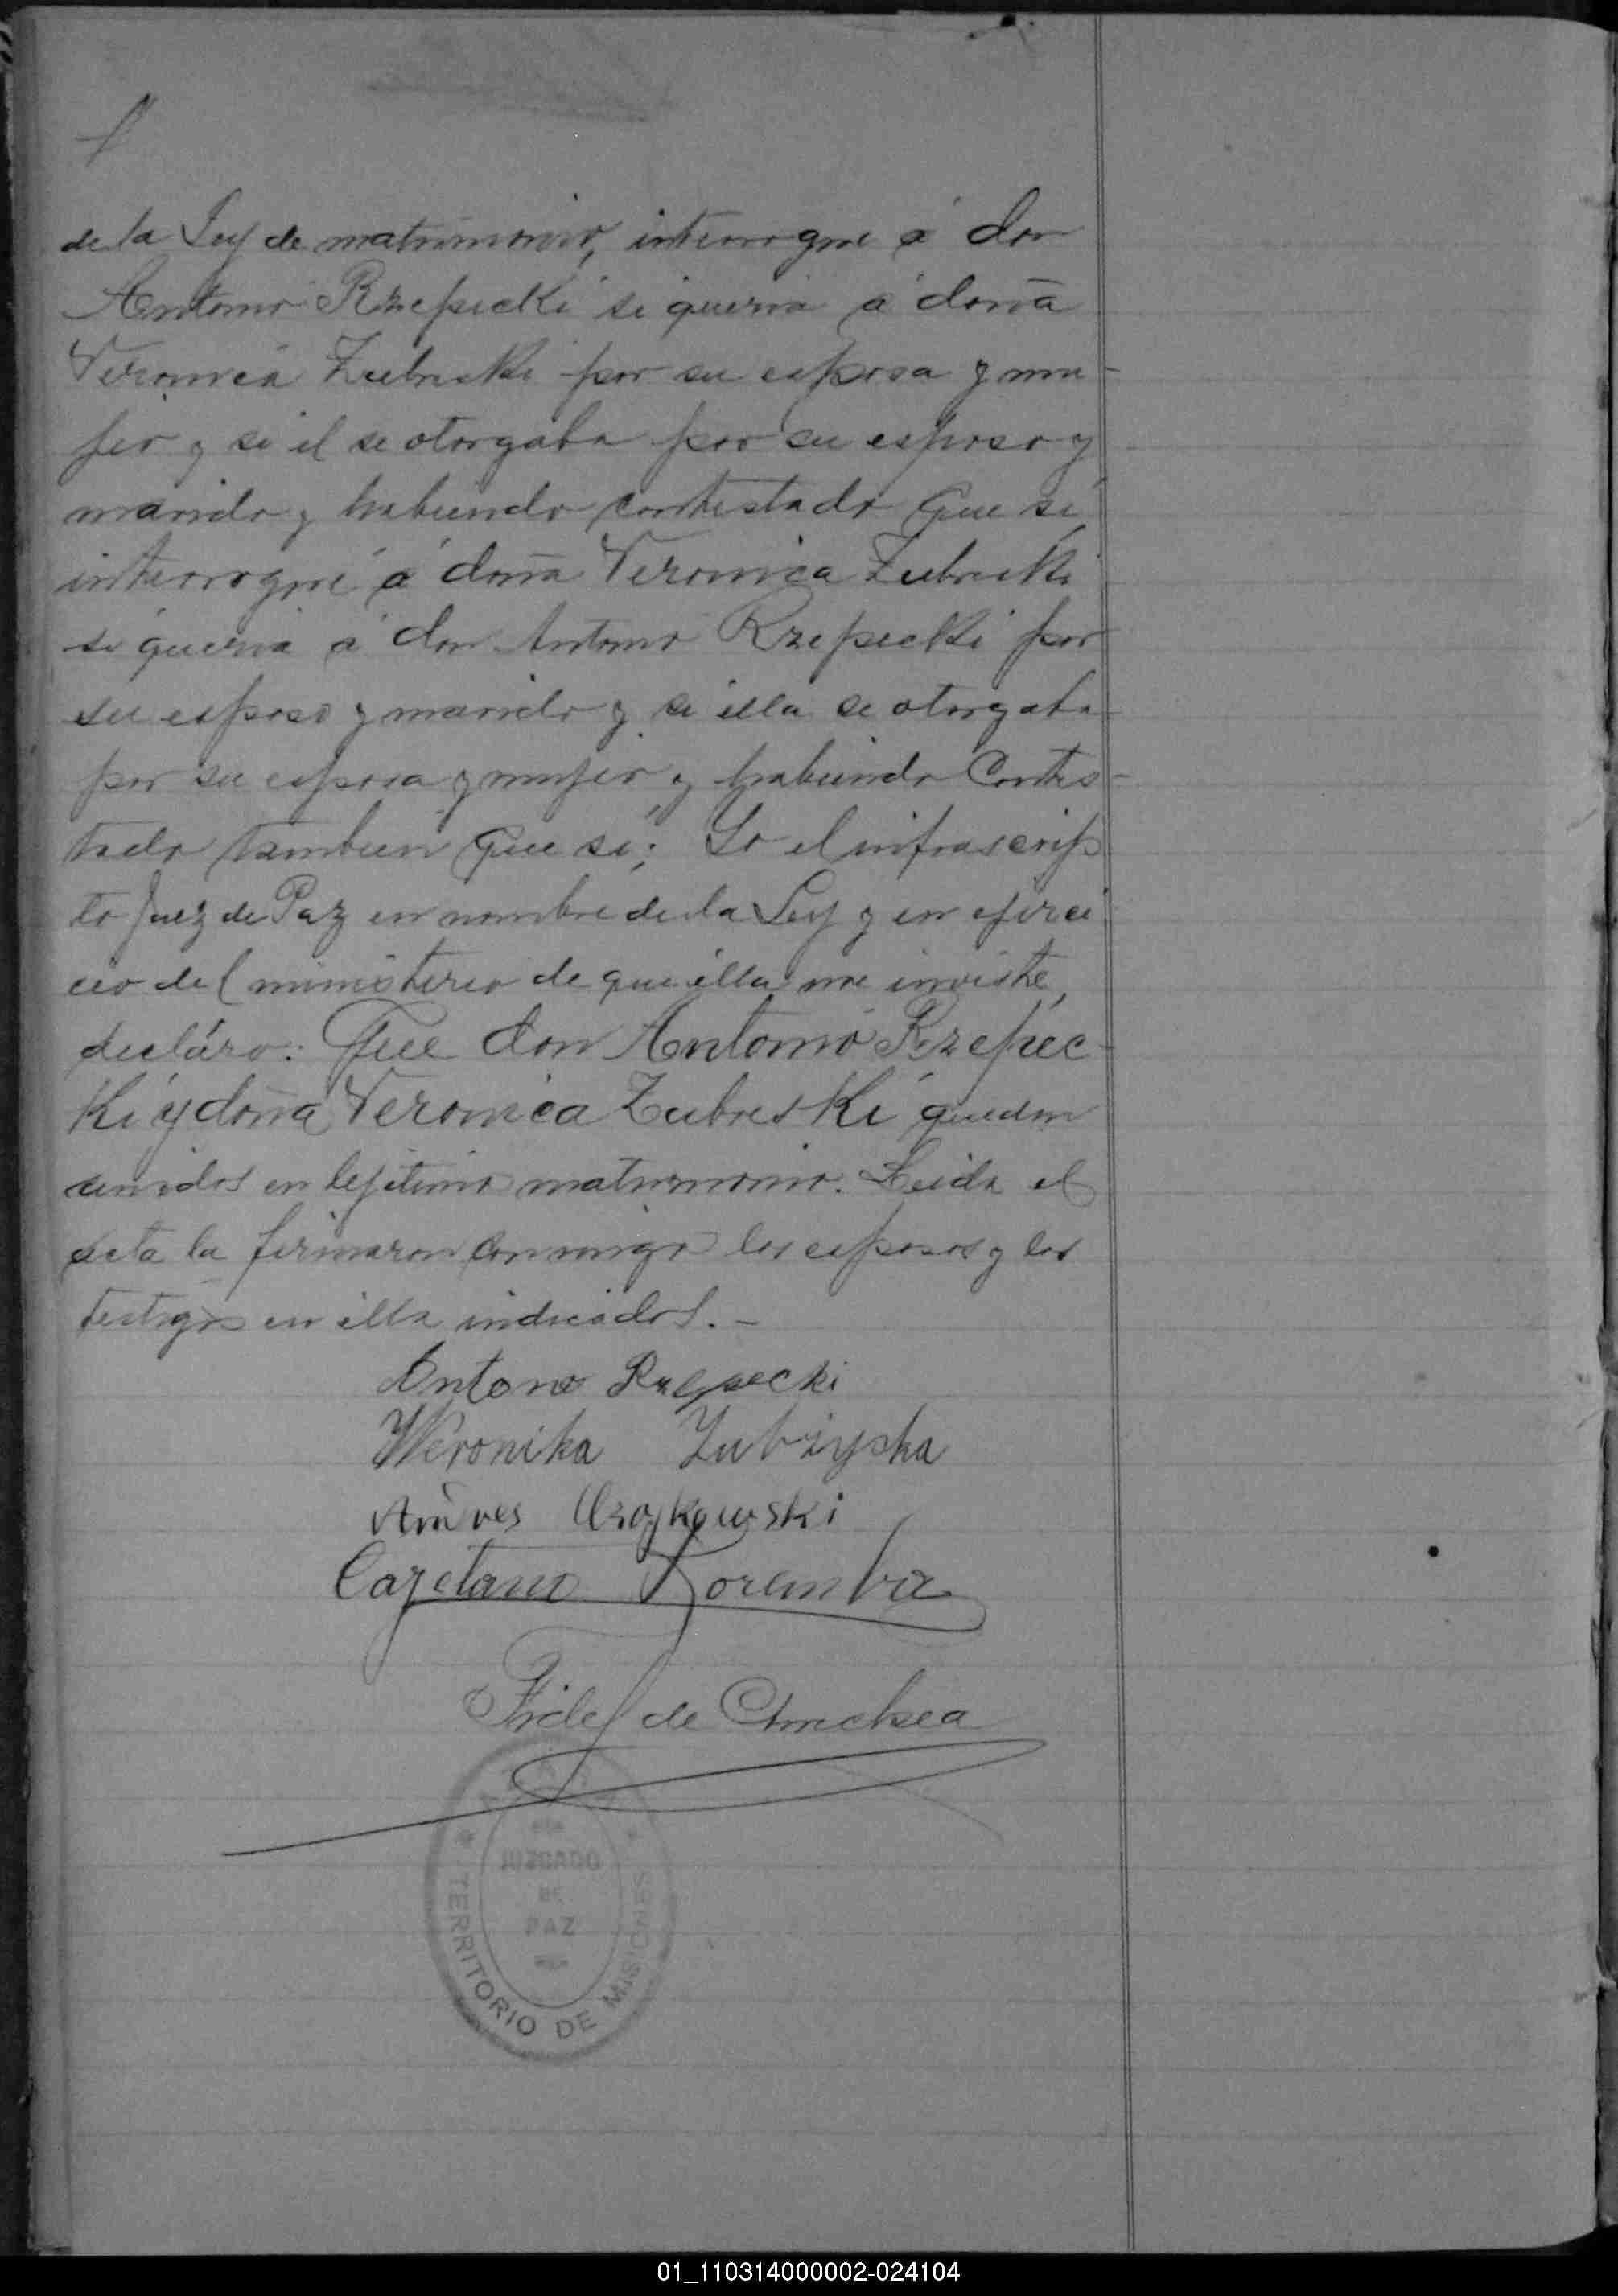 de la Ley de matrimonio, interrogue á don
Antonio Rzepecki si queria á doña
Veronica Zubreski por su esposa y mu-
jer y si el se otorgaba por su esposo y
marido y habiendo contestado que sí
interrogué á doña Veronica Zubreski
si queria á don Antonio Rzepecki por
su esposo y marido y si ella se otorgaba
por su esposa y mujer y habiendo Contes-
tado tambien que sí; Yo el infrascrip
to Juez de Paz en nombre de la Ley y en ejerci
cio del ministerio de que ella me inviste,
declaro: Que don Antonio Rzepec-
Ki y doña Veronica Zubreski quedan
unidos en lejitimo matrimonio. Leida el
acta la firmaron conmigo los esposos y los
testigos en ella indicados.-
Antono Rzepecki
Weronika Zubrzyska
Cazetano Zoremba
Fidel de
JUZGADO
DE
PAZ
TERRITORIO DE MISIONES
01_110314000002-024104